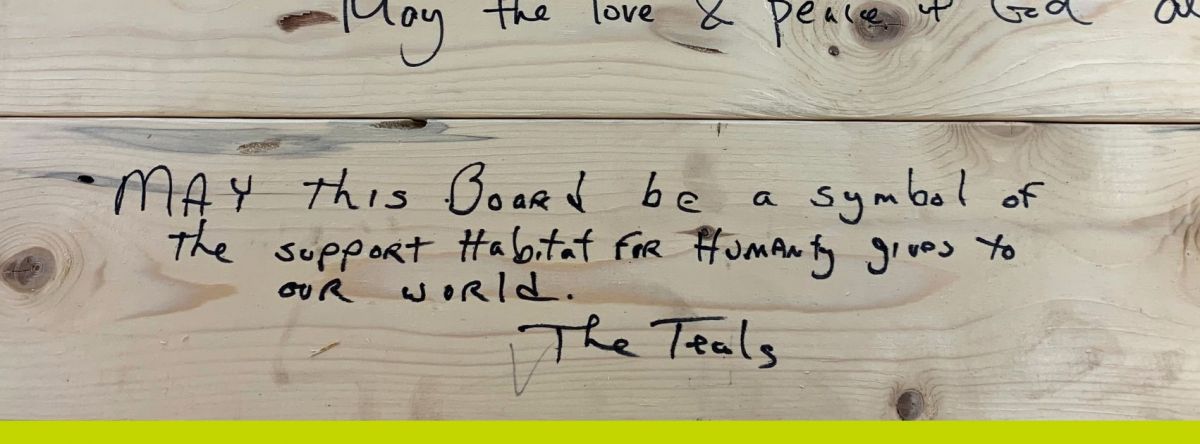 May the love & peace of God
MAY this BOARd be a symbol of
The suppoRt Habitat FoR HUMANty gives to
OUR WORld.
The Teals